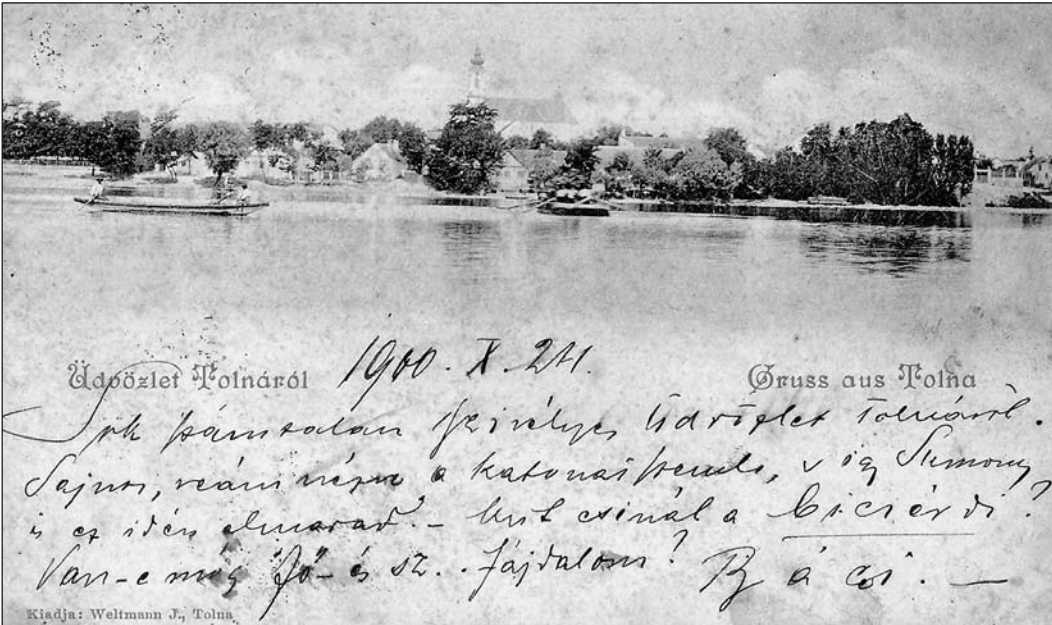 1900. X. 24.
Üdvözlet Tolnáról
Gruss aus Tolna
Sok számtalan szivélyes üdvözlet Tolnáról.
Sajnos, reám nézve a katonai szemle, s így
is ez idén elmarad. - Mit csinál a Bicsérdi?
Van-e még fő- és sz.. fájdalom?
Kiadja: Weltmann J., Tolna